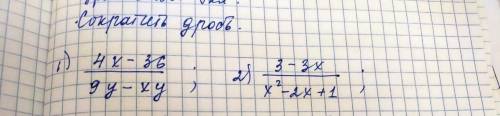 Сократить дробь.
1) (4x - 36)/(9y - xy) ; 2) (3 - 3x)/(x² - 2x + 1) ;